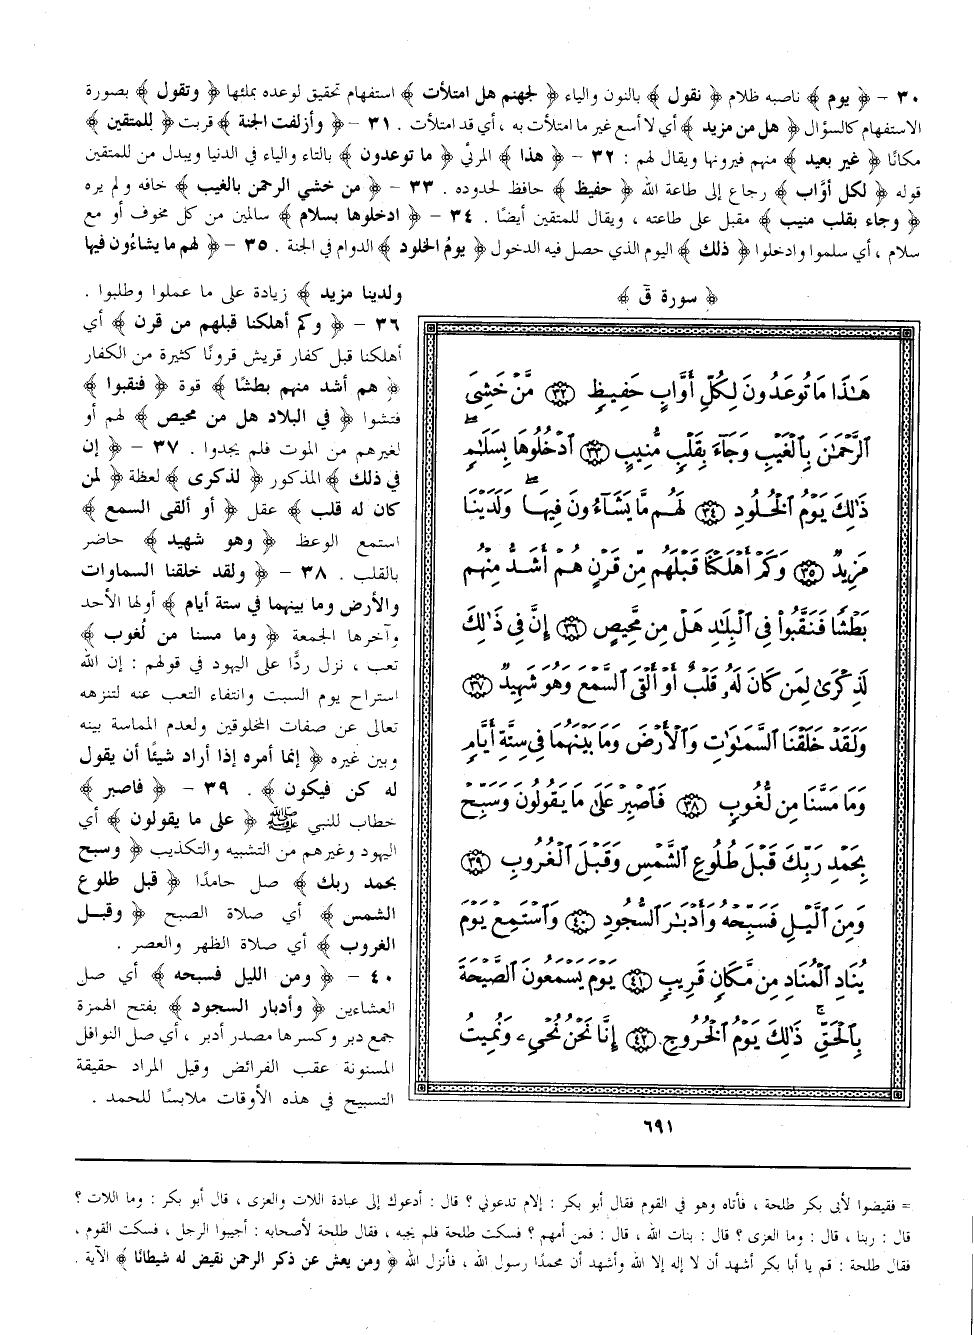 ٣٠ – ﴿ يوم ﴾ ناصبه ظلام ﴿ نقول ﴾ بالنون والياء ﴿ لجهنم هل امتلأت ﴾ استفهام تحقيق لوعده بملئها ﴿ وتقول ﴾ بصورة
الاستفهام كالسؤال ﴿ هل من مزيد ﴾ أي لا أسع غير ما امتلأت به ، أي قد امتلأت . ٣١ – ﴿ وأزلفت الجنة ﴾ قربت ﴿ للمتقين ﴾
مكانًا ﴿ غير بعيد ﴾ منهم فيرونها ويقال لهم : ٣٢ – ﴿ هذا ﴾ المرئي ﴿ ما توعدون ﴾ بالتاء والياء في الدنيا ويبدل من للمتقين
قوله ﴿ لكل أوَّاب ﴾ رجاع إلى طاعة الله ﴿ حفيظ ﴾ حافظ لحدوده . ٣٣ – ﴿ من خشي الرحمن بالغيب ﴾ خافه ولم يره
﴿ وجاء بقلب منيب ﴾ مقبل على طاعته ، ويقال للمتقين أيضًا . ٣٤ – ﴿ ادخلوها بسلام ﴾ سالمين من كل مخوف أو مع
سلام ، أي سلموا وادخلوا ﴿ ذلك ﴾ اليوم الذي حصل فيه الدخول ﴿ يومُ الخلود ﴾ الدوام في الجنة . ٣٥ – ﴿ لهم ما يشاءُون فيها
ولدينا مزيد ﴾ زيادة على ما عملوا وطلبوا .
٣٦ – ﴿ وكم أهلكنا قبلهم من قرن ﴾ أي
أهلكنا قبل كفار قريش قرونًا كثيرة من الكفار
﴿ هم أشد منهم بطشًا ﴾ قوة ﴿ فنقبوا ﴾
فتشوا ﴿ في البلاد هل من محيص ﴾ لهم أو
لغيرهم من الموت فلم يجدوا . ٣٧ – ﴿ إن
في ذلك ﴾ المذكور ﴿ لذكرى ﴾ لعظة ﴿ لمن
كان له قلب ﴾ عقل ﴿ أو ألقى السمع ﴾
استمع الوعظ ﴿ وهو شهيد ﴾ حاضر
بالقلب . ٣٨ – ﴿ ولقد خلقنا السماوات
والأرض وما بينهما في ستة أيام ﴾ أولها الأحد
وآخرها الجمعة ﴿ وما مسنا من لُغوب ﴾
تعب ، نزل ردًّا على اليهود في قولهم : إن الله
استراح يوم السبت وانتفاء التعب عنه لتنزهه
تعالى عن صفات المخلوقين ولعدم المماسة بينه
وبين غيره ﴿ إنما أمره إذا أراد شيئًا أن يقول
له كن فيكون ﴾ . ٣٩ – ﴿ فاصبر ﴾
خطاب للنبي ﷺ ﴿ على ما يقولون ﴾ أي
اليهود وغيرهم من التشبيه والتكذيب ﴿ وسبح
بحمد ربك ﴾ صل حامدًا ﴿ قبل طلوع
الشمس ﴾ أي صلاة الصبح ﴿ وقبل
الغروب ﴾ أي صلاة الظهر والعصر .
٤٠ – ﴿ ومن الليل فسبحه ﴾ أي صل
العشاءين ﴿ وأدبار السجود ﴾ بفتح الهمزة
جمع دبر وكسرها مصدر أدبر ، أي صل النوافل
المسنونة عقب الفرائض وقيل المراد حقيقة
التسبيح في هذه الأوقات ملابسًا للحمد .
﴿ سورة قٓ ﴾
هَٰذَا مَا تُوعَدُونَ لِكُلِّ أَوَّابٍ حَفِيظٍ ٣٢ مَّنْ خَشِىَ
ٱلرَّحْمَٰنَ بِٱلْغَيْبِ وَجَآءَ بِقَلْبٍ مُّنِيبٍ ٣٣ ٱدْخُلُوهَا بِسَلَٰمٍ
ذَٰلِكَ يَوْمُ ٱلْخُلُودِ ٣٤ لَهُم مَّا يَشَآءُونَ فِيهَا وَلَدَيْنَا
مَزِيدٌ ٣٥ وَكَمْ أَهْلَكْنَا قَبْلَهُم مِّن قَرْنٍ هُمْ أَشَدُّ مِنْهُم
بَطْشًا فَنَقَّبُوا۟ فِى ٱلْبِلَٰدِ هَلْ مِن مَّحِيصٍ ٣٦ إِنَّ فِى ذَٰلِكَ
لَذِكْرَىٰ لِمَن كَانَ لَهُۥ قَلْبٌ أَوْ أَلْقَى ٱلسَّمْعَ وَهُوَ شَهِيدٌ ٣٧
وَلَقَدْ خَلَقْنَا ٱلسَّمَٰوَٰتِ وَٱلْأَرْضَ وَمَا بَيْنَهُمَا فِى سِتَّةِ أَيَّامٍ
وَمَا مَسَّنَا مِن لُّغُوبٍ ٣٨ فَٱصْبِرْ عَلَىٰ مَا يَقُولُونَ وَسَبِّحْ
بِحَمْدِ رَبِّكَ قَبْلَ طُلُوعِ ٱلشَّمْسِ وَقَبْلَ ٱلْغُرُوبِ ٣٩
وَمِنَ ٱلَّيْلِ فَسَبِّحْهُ وَأَدْبَٰرَ ٱلسُّجُودِ ٤٠ وَٱسْتَمِعْ يَوْمَ
يُنَادِ ٱلْمُنَادِ مِن مَّكَانٍ قَرِيبٍ ٤١ يَوْمَ يَسْمَعُونَ ٱلصَّيْحَةَ
بِٱلْحَقِّ ذَٰلِكَ يَوْمُ ٱلْخُرُوجِ ٤٢ إِنَّا نَحْنُ نُحْىِۦ وَنُمِيتُ
٦٩١
= فقيضوا لأبي بكر طلحة ، فأتاه وهو في القوم فقال أبو بكر : إلام تدعوني ؟ قال : أدعوك إلى عبادة اللات والعزى ، قال أبو بكر : وما اللات ؟
قال : ربنا ، قال : وما العزى ؟ قال : بنات الله ، قال : فمن أمهم ؟ فسكت طلحة فلم يجبه ، فقال طلحة لأصحابه : أجيبوا الرجل ، فسكت القوم ،
فقال طلحة : قم يا أبا بكر أشهد أن لا إله إلا الله وأشهد أن محمدًا رسول الله ، فأنزل الله ﴿ ومن يعش عن ذكر الرحمن نقيض له شيطانًا ﴾ الآية .